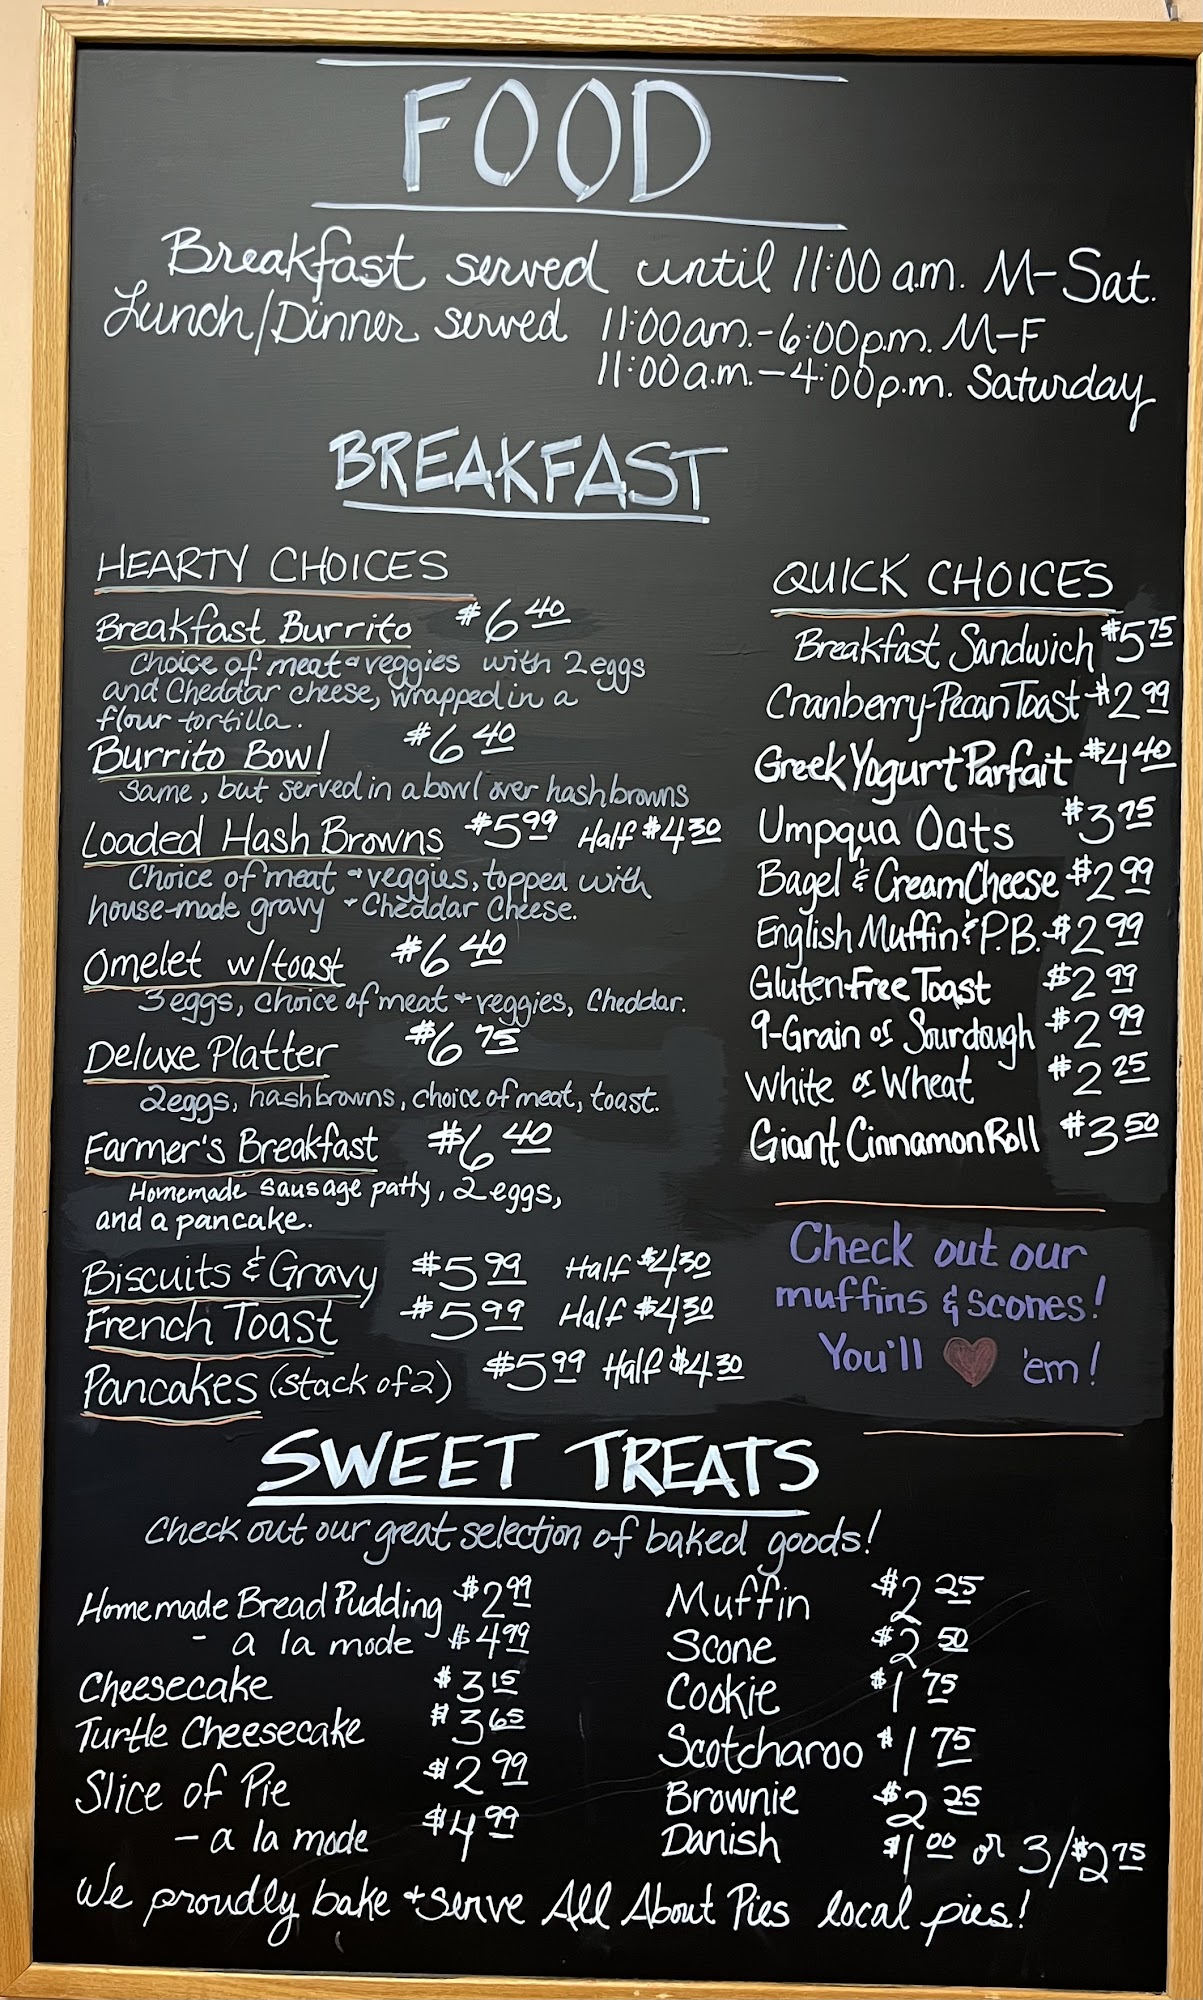 FOOD
Breakfast served until 11:00 a.m. M-Sat.
Lunch/Dinner served 11:00am.-6:00p.m. M-F
11:00a.m.-4:00p.m. Saturday
BREAKFAST
HEARTY CHOICES
Breakfast Burrito $6.40
Choice of meat & veggies with 2 eggs
and Cheddar cheese, wrapped in a
flour tortilla.
Burrito Bowl $6.40
Same, but served in a bowl over hashbrowns
Loaded Hash Browns $5.99 Half $4.30
Choice of meat & veggies, topped with
house-made gravy & Cheddar Cheese.
Omelet w/toast $6.40
3 eggs, choice of meat & veggies, Cheddar.
Deluxe Platter $6.75
2 eggs, hashbrowns, choice of meat, toast.
Farmer's Breakfast $6.40
Homemade sausage patty, 2 eggs,
and a pancake.
Biscuits & Gravy $5.99 Half $4.30
French Toast $5.99 Half $4.30
Pancakes (stack of 2) $5.99 Half $4.30
QUICK CHOICES
Breakfast Sandwich $5.75
Cranberry-Pecan Toast $2.99
Greek Yogurt Parfait $4.40
Umpqua Oats $3.75
Bagel & Cream Cheese $2.99
English Muffin & P.B. $2.99
Gluten-Free Toast $2.99
9-Grain or Sourdough $2.99
White or Wheat $2.25
Giant Cinnamon Roll $3.50
Check out our
muffins & scones!
You'll ♥ 'em!
SWEET TREATS
Check out our great selection of baked goods!
Homemade Bread Pudding $2.99
- a la mode $4.99
Cheesecake $3.15
Turtle Cheesecake $3.65
Slice of Pie $2.99
- a la mode $4.99
Muffin $2.25
Scone $2.50
Cookie $1.75
Scotcharoo $1.75
Brownie $2.25
Danish $1.00 or 3/$2.75
We proudly bake & serve All About Pies local pies!